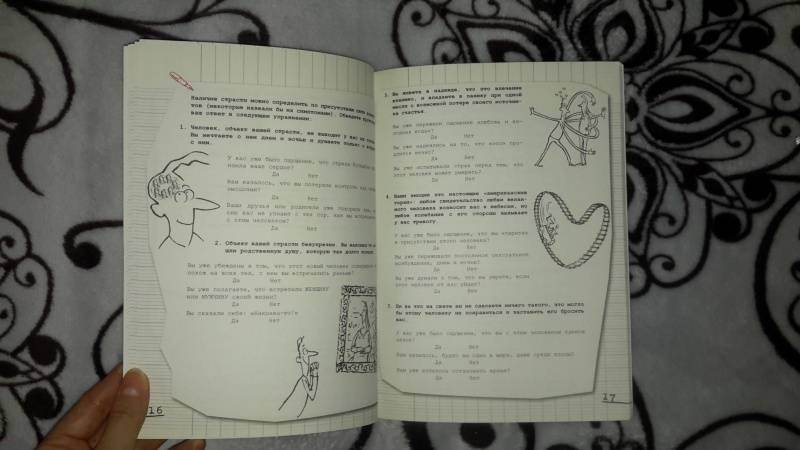 Наличие страсти можно определить по присутствию пяти
тов (некоторые назвали бы их симптомами). Обведите
вая ответ в следующем упражнении:
1. Человек, объект вашей страсти, не выходит у вас из
Вы мечтаете о нем днем и ночью и думаете только о
с ним.
У вас уже было ощущение, что стрела
ваше сердце?
Да Нет
Вам казалось, что вы потеряли контроль над
эмоциями?
Да Нет
Ваши друзья или родители уже говорили вам,
вас не увидел с тех пор, как вы
с этим человеком?
Да Нет
2. Объект вашей страсти безупречен. Вы
или родственную душу, которую так долго
Вы уже убеждены в том, что этот новый человек совершенно не
похож на всех тех, с кем вы встречались раньше?
Да Нет
Вы уже полагаете, что встретили ЖЕНЩИНУ
или МУЖЧИНУ своей жизни?
Да Нет
Вы сказали себе:
Да Нет
16
3. Вы живете в надежде, что это влечение
взаимно, и впадаете в панику при одной
мысли о возможной потере своего источни-
ка счастья.
Вы уже пережили ощущение озноба и
Да Нет
Вы уже надеялись на то, что
Да Нет
Вы уже испытывали страх перед тем, что
этот человек может умереть?
Да Нет
4. Ваши эмоции это настоящие «американские
горки»: любое свидетельство любви желан-
ного человека возносит вас к небесам, но
любое колебание с его стороны вызывает
у вас тревогу.
У вас уже было ощущение, что вы
в присутствии этого человека?
Да Нет
Вы уже переживали постоянное сексуальное
возбуждение, днем и ночью?
Да Нет
Вы уже думали о том, что вы умрете, если
этот человек от вас уйдет?
Да Нет
5. Ни за что на свете вы не сделаете ничего такого, что могло
бы этому человеку не понравиться и заставить его бросить
вас.
У вас уже было ощущение, что вы с этим человеком одно
целое?
Да Нет
Вам казалось, будто вы одни в мире, даже среди толпы?
Да Нет
Вам уже хотелось остановить время?
Да Нет
17